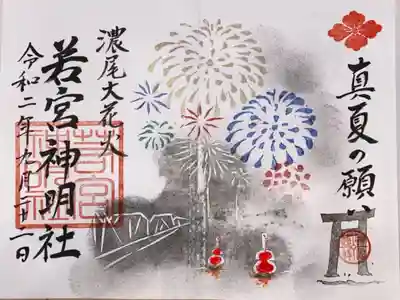 真夏の願い
濃尾大花火
若宮神明社
令和二年九月二十二日